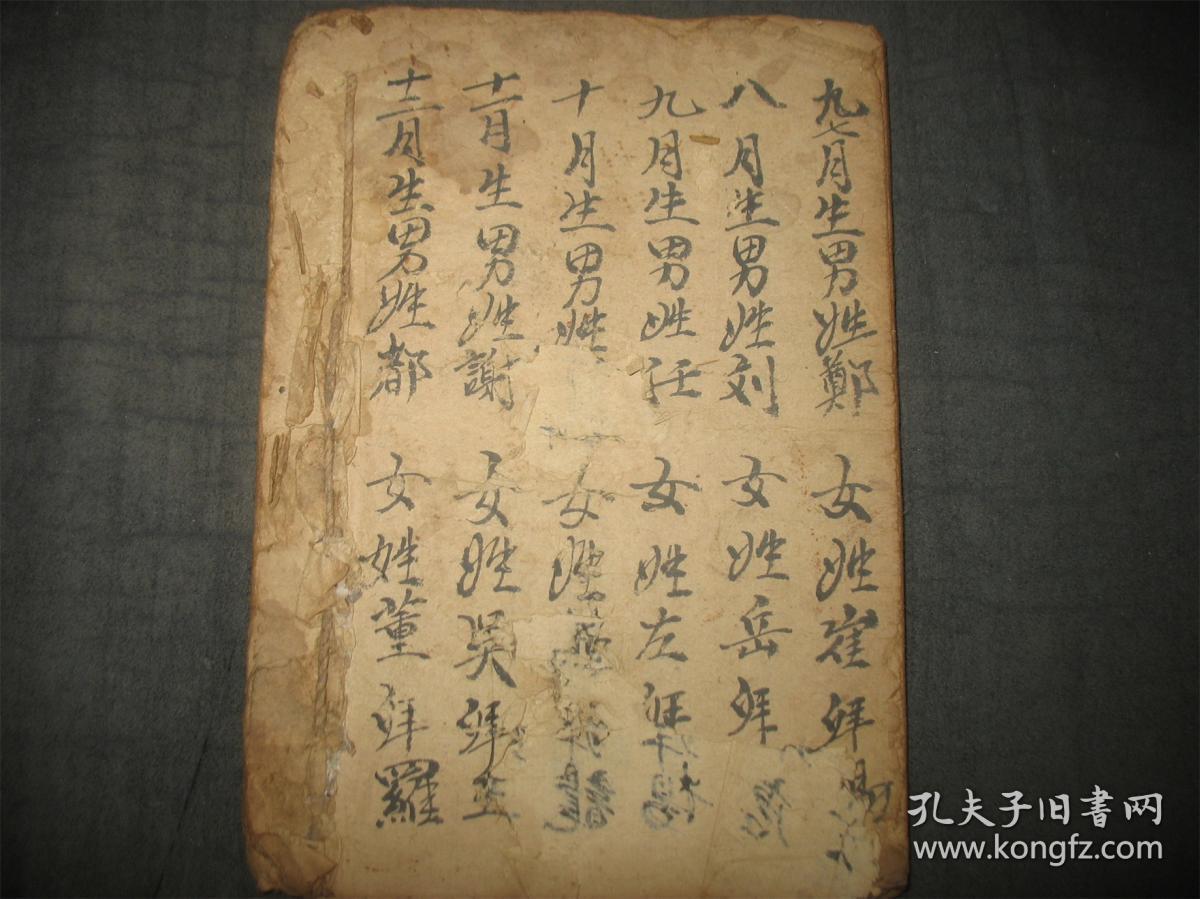 九七月生男姓鄭 女姓崔 拜
八月生男姓刘 女姓岳 拜
九月生男姓任 女姓左 拜
十月生男姓 女姓
十一月生男姓謝 女姓吳 拜王
十二月生男姓都 女姓董 拜羅
孔夫子旧书网
www.kongfz.com